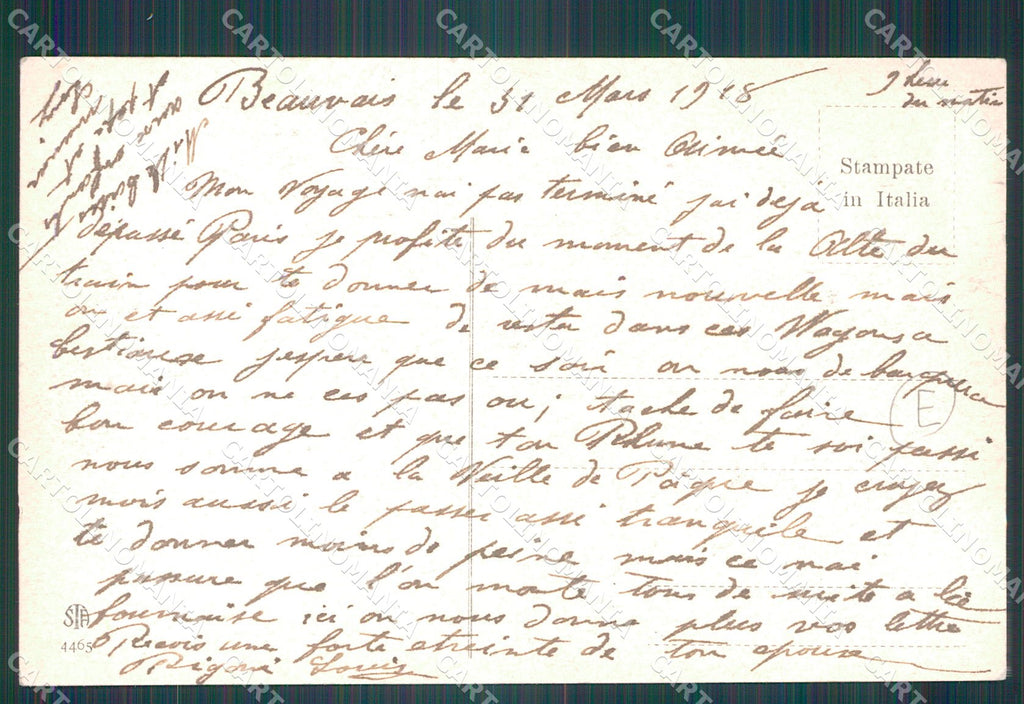 Beauvais le 31 Mars 1918
9 heure
du matin
Chère Marie bien Aimée
Mon Voyage nai pas terminé jai deja
dépassé Paris je profite du moment de la Alte du
train pour te donner de mais nouvelle mais
on et assé fatigue de rester dans ces Wagons a
bestiause jesper que ce soir on nous debarquera
mais on ne ces pas ou; tache de faire
bon courage et que ton Rhume te soi passé
nous somme a la Veille de Paque je croyez
mois aussi le passer assé tranquile et
te donner moins de peine mais ce nai
passure que l'on monte tous de suite a la
fournaise ici on nous donne plus vos lettre
Recois une forte etreinte de ton epoux
Rigoni Louis
Stampate
in Italia
E
STA
4465